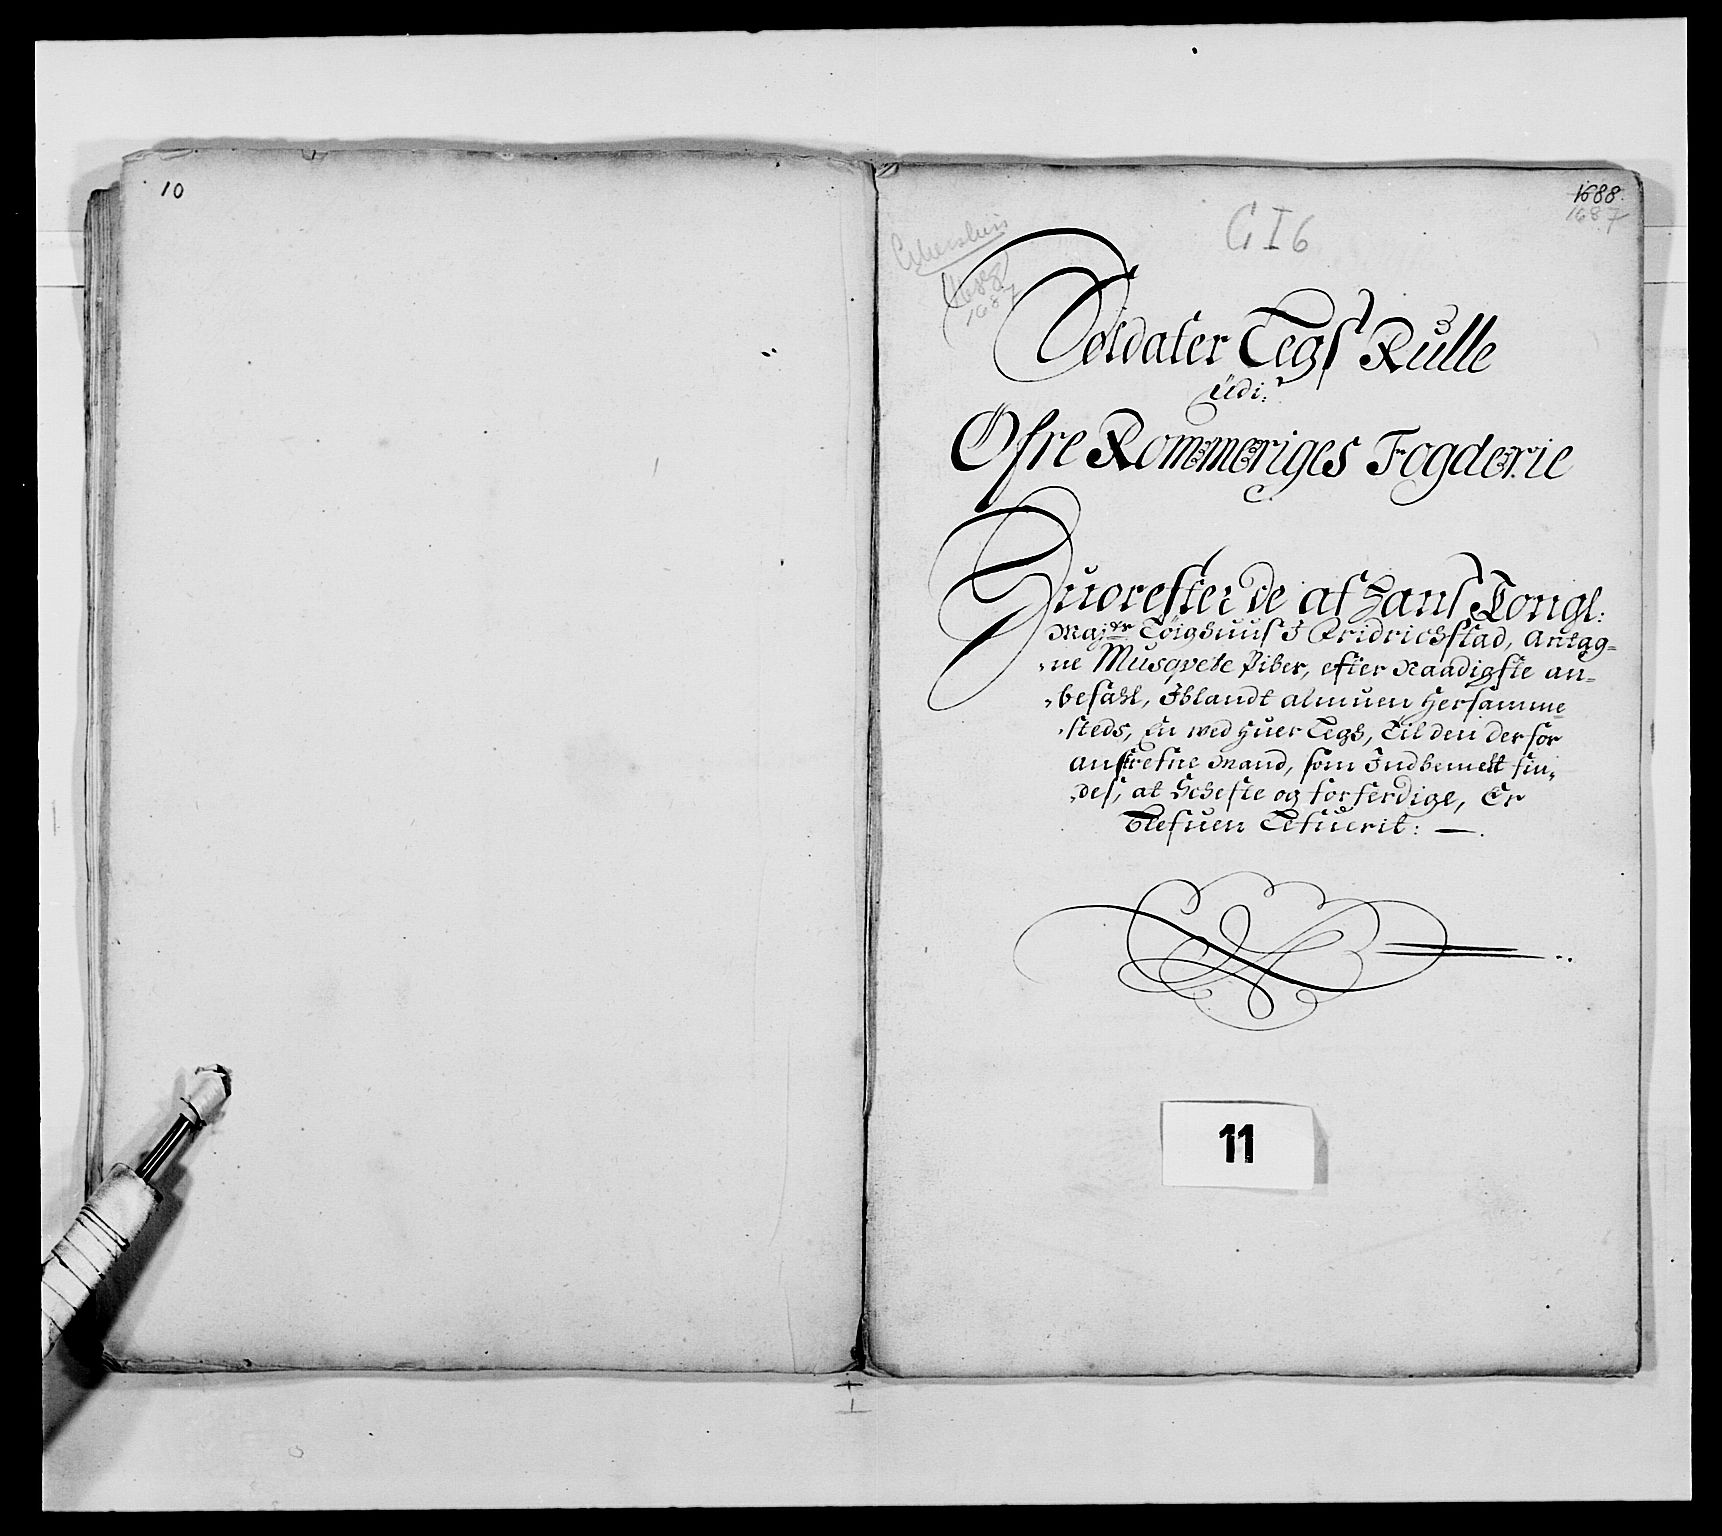 10
1688
1687
G I 6
Akershus
1688
1687
Soldater Legs Rulle
Udi:
Ofre Rommeriges Fogderie
Huorefter de af Hans Kongl:
Maj:ts Töighuus I Fridrichstad, Antag=
=ne Musqvete Piber, efter Naadigste an=
=befahl, Iblandt almuen hersamme=
=steds, En wed huer Legs, til den der for
anskrefne Mand, som Indbemelt fin=
=des, at Schefte og forferdige, Er
blefuen Lefuerit: —.
11